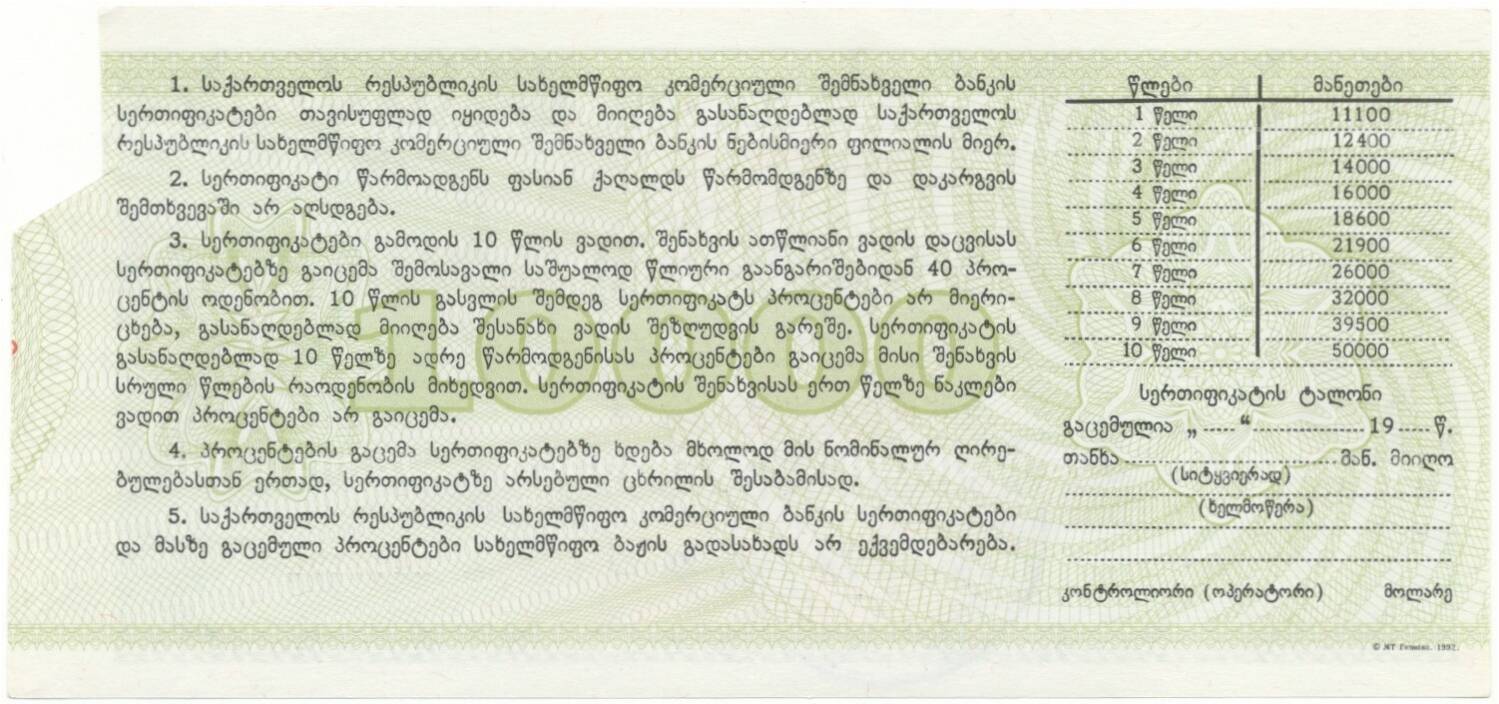 1. საქართველოს რესპუბლიკის სახელმწიფო კომერციული შემნახველი ბანკის
სერთიფიკატები თავისუფლად იყიდება და მიიღება გასანაღდებლად საქართველოს
რესპუბლიკის სახელმწიფო კომერციული შემნახველი ბანკის ნებისმიერი ფილიალის მიერ.
2. სერთიფიკატი წარმოადგენს ფასიან ქაღალდს წარმომდგენზე და დაკარგვის
შემთხვევაში არ აღსდგება.
3. სერთიფიკატები გამოდის 10 წლის ვადით. შენახვის ათწლიანი ვადის დაცვისას
სერთიფიკატებზე გაიცემა შემოსავალი საშუალოდ წლიური გაანგარიშებიდან 40 პრო-
ცენტის ოდენობით. 10 წლის გასვლის შემდეგ სერთიფიკატს პროცენტები არ მიერი-
ცხება, გასანაღდებლად მიიღება შესანახი ვადის შეზღუდვის გარეშე. სერთიფიკატის
გასანაღდებლად 10 წელზე ადრე წარმოდგენისას პროცენტები გაიცემა მისი შენახვის
სრული წლების რაოდენობის მიხედვით. სერთიფიკატის შენახვისას ერთ წელზე ნაკლები
ვადით პროცენტები არ გაიცემა.
4. პროცენტების გაცემა სერთიფიკატებზე ხდება მხოლოდ მის ნომინალურ ღირე-
ბულებასთან ერთად, სერთიფიკატზე არსებული ცხრილის შესაბამისად.
5. საქართველოს რესპუბლიკის სახელმწიფო კომერციული ბანკის სერთიფიკატები
და მასზე გაცემული პროცენტები სახელმწიფო ბაჟის გადასახადს არ ექვემდებარება.
10000
წლები მანეთები
1 წელი 11100
2 წელი 12400
3 წელი 14000
4 წელი 16000
5 წელი 18600
6 წელი 21900
7 წელი 26000
8 წელი 32000
9 წელი 39500
10 წელი 50000
სერთიფიკატის ტალონი
გაცემულია „ ..... “ .................. 19 ..... წ.
თანხა .............................. მან. მიიღო
(სიტყვიერად)
(ხელმოწერა)
კონტროლიორი (ოპერატორი) მოლარე
© МТ Гознака. 1992.